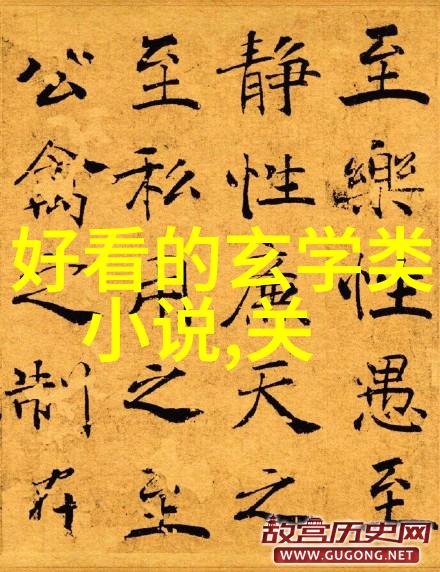 至樂性愚至
静性廉天之
至私用之至
公禽之制在
好看的玄学类
小说,关
故宫历史网
WWW.GUGONG.NET